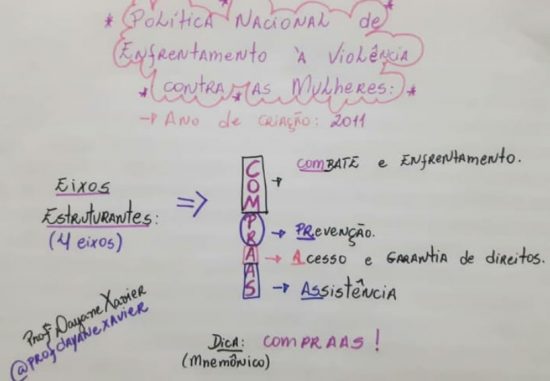 * Política Nacional de
Enfrentamento à Violência
* contra as Mulheres: *
→ Ano de criação: 2011
Eixos
Estruturantes:
(4 eixos)
⇒
COMPRAAS
→ COMBATE e Enfrentamento.
→ PREVENÇÃO.
→ Acesso e Garantia de direitos.
→ ASSistência
Dica: COMPRAAS!
(Mnemônico)
Profª Dayane Xavier
@profdayanexavier